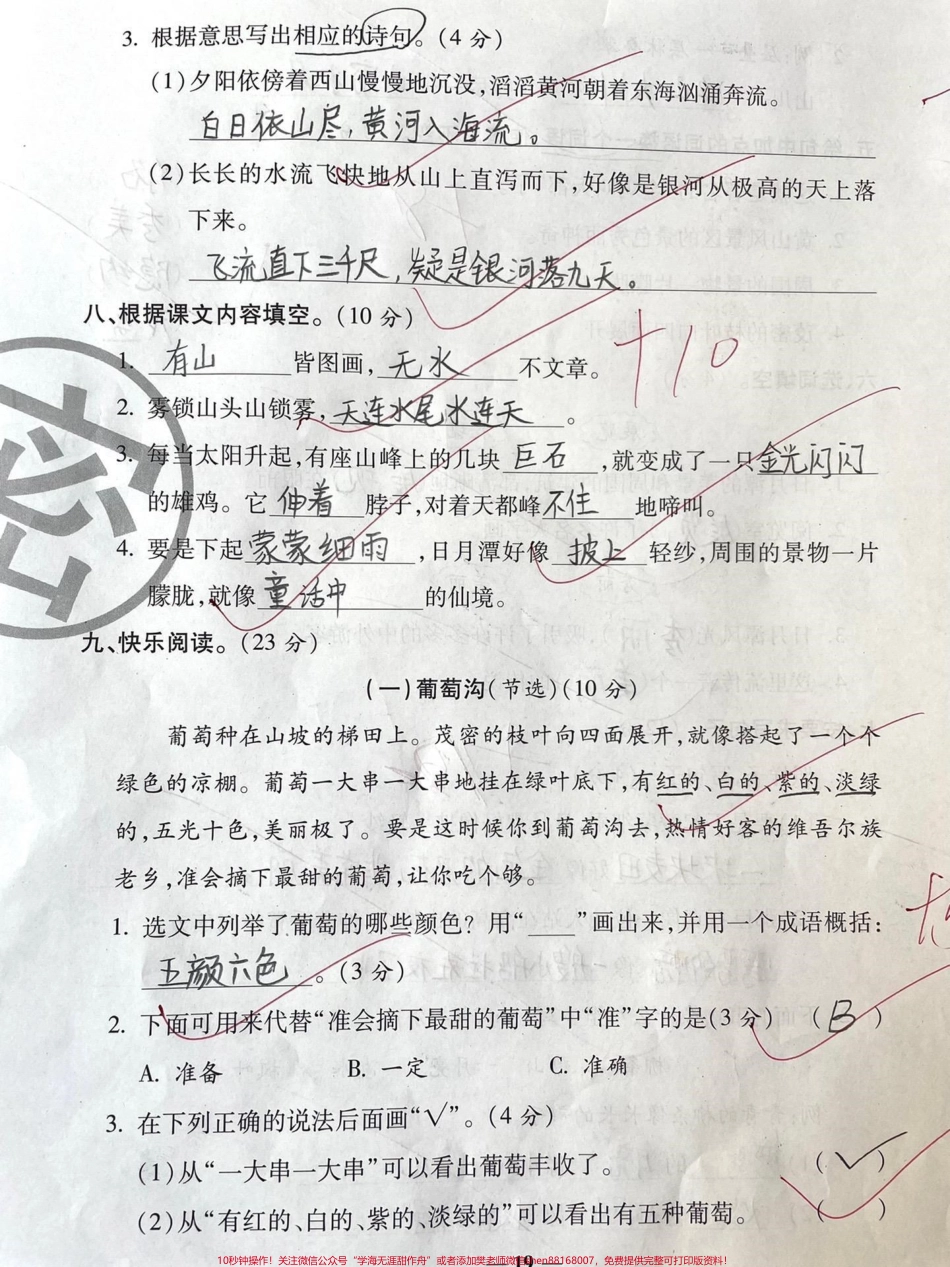 3. 根据意思写出相应的诗句。(4 分)
(1)夕阳依傍着西山慢慢地沉没,滔滔黄河朝着东海汹涌奔流。
白日依山尽,黄河入海流。
(2)长长的水流飞快地从山上直泻而下,好像是银河从极高的天上落
下来。
飞流直下三千尺,疑是银河落九天。
八、根据课文内容填空。(10 分)
+10
1. 有山皆图画,无水不文章。
2. 雾锁山头山锁雾,天连水尾水连天。
3. 每当太阳升起,有座山峰上的几块巨石,就变成了一只金光闪闪
的雄鸡。它伸着脖子,对着天都峰不住地啼叫。
4. 要是下起蒙蒙细雨,日月潭好像披上轻纱,周围的景物一片
朦胧,就像童话中的仙境。
密
九、快乐阅读。(23 分)
(一)葡萄沟(节选)(10 分)
葡萄种在山坡的梯田上。茂密的枝叶向四面展开,就像搭起了一个个
绿色的凉棚。葡萄一大串一大串地挂在绿叶底下,有红的、白的、紫的、淡绿
的,五光十色,美丽极了。要是这时候你到葡萄沟去,热情好客的维吾尔族
老乡,准会摘下最甜的葡萄,让你吃个够。
1. 选文中列举了葡萄的哪些颜色？用“___”画出来,并用一个成语概括:
五颜六色。(3 分)
2. 下面可用来代替“准会摘下最甜的葡萄”中“准”字的是(3 分) (B)
A. 准备 B. 一定 C. 准确
3. 在下列正确的说法后面画“√”。(4 分)
(1)从“一大串一大串”可以看出葡萄丰收了。 (√)
(2)从“有红的、白的、紫的、淡绿的”可以看出有五种葡萄。 ( )
10秒钟操作！关注微信公众号“学海无涯甜作舟”或者添加樊老师微信88168007，免费提供完整可打印版资料！